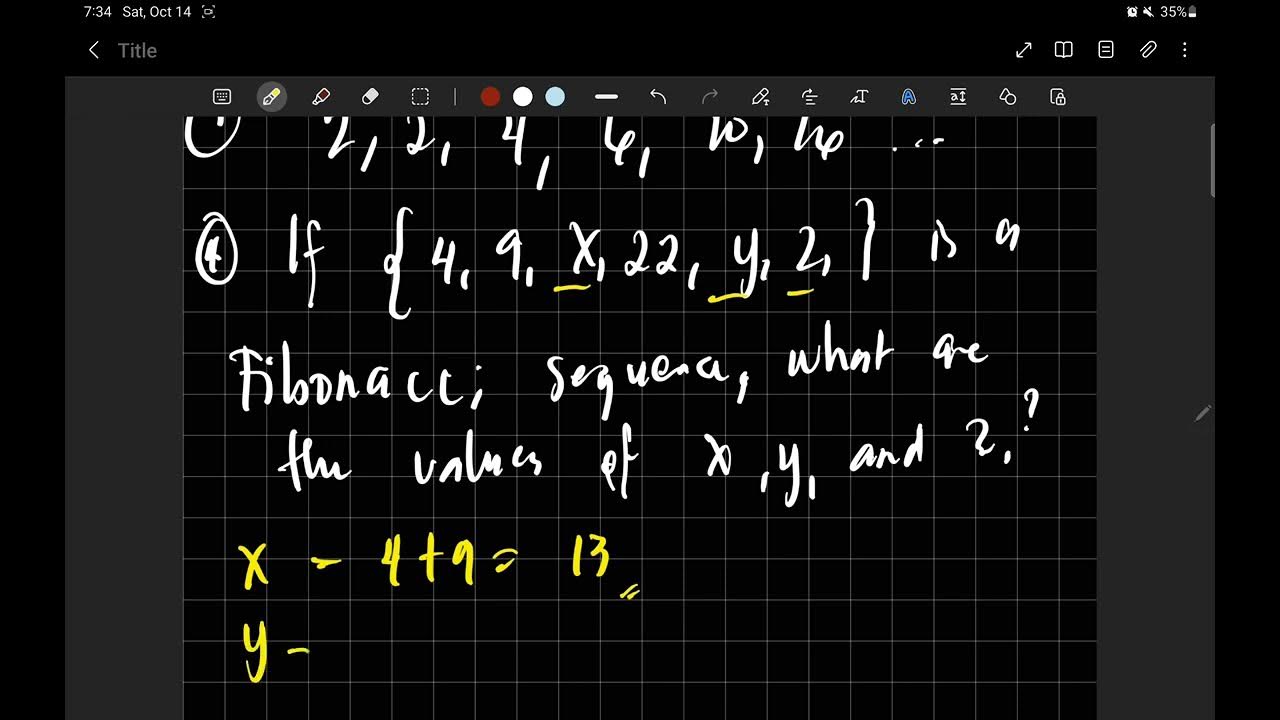 7:34 Sat, Oct 14 35%
Title
2, 2, 4, 6, 10, 16 ...
④ If {4, 9, x, 22, y, z, } is a
Fibonacci sequence, what are
the values of x, y, and z.?
x - 4+9 = 13
y -